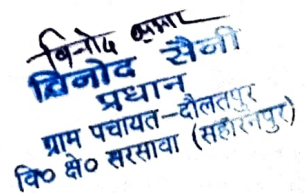 विनोद कुमार
विनोद सैनी
प्रधान
ग्राम पंचायत-दौलतपुर
वि० क्षे० सरसावा (सहारनपुर)